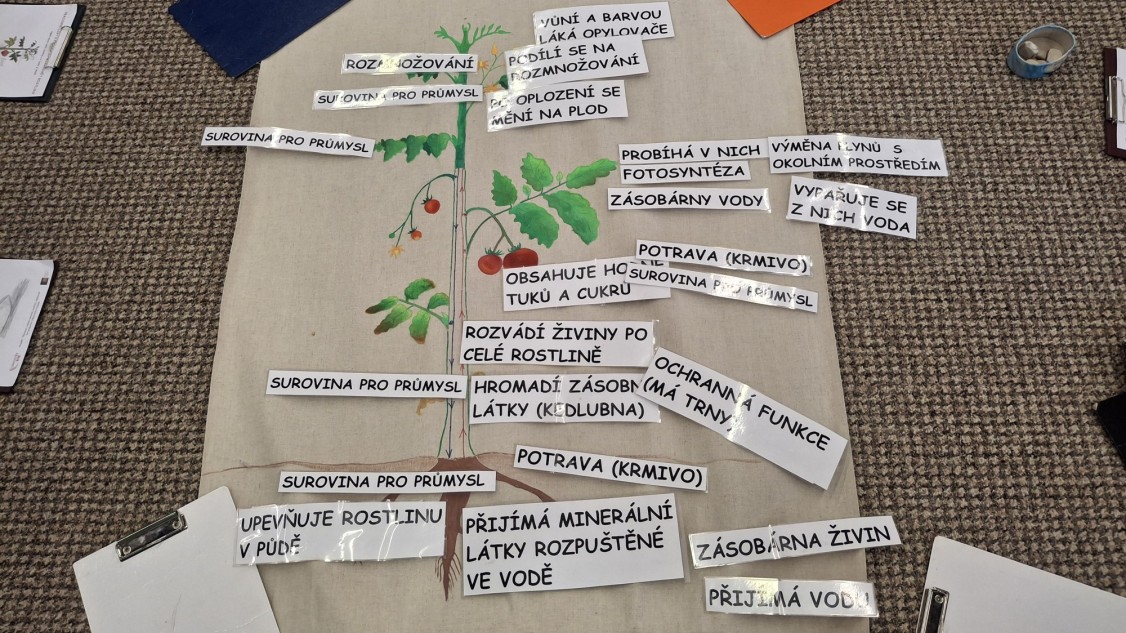 VŮNÍ A BARVOU
LÁKÁ OPYLOVAČE
ROZMNOŽOVÁNÍ
PODÍLÍ SE NA
ROZMNOŽOVÁNÍ
SUROVINA PRO PRŮMYSL
PO OPLOZENÍ SE
MĚNÍ NA PLOD
SUROVINA PRO PRŮMYSL
PROBÍHÁ V NICH
FOTOSYNTÉZA
VÝMĚNA PLYNŮ S
OKOLNÍM PROSTŘEDÍM
ZÁSOBÁRNY VODY
VYPAŘUJE SE
Z NICH VODA
POTRAVA (KRMIVO)
OBSAHUJE HODNĚ
TUKŮ A CUKRŮ
SUROVINA PRO PRŮMYSL
ROZVÁDÍ ŽIVINY PO
CELÉ ROSTLINĚ
SUROVINA PRO PRŮMYSL
HROMADÍ ZÁSOBNÍ
LÁTKY (KEDLUBNA)
OCHRANNÁ FUNKCE
(MÁ TRNY)
POTRAVA (KRMIVO)
SUROVINA PRO PRŮMYSL
UPEVŇUJE ROSTLINU
V PŮDĚ
PŘIJÍMÁ MINERÁLNÍ
LÁTKY ROZPUŠTĚNÉ
VE VODĚ
ZÁSOBÁRNA ŽIVIN
PŘIJÍMÁ VODU